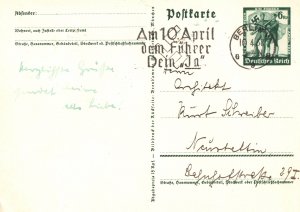 Absender:
Wohnort, auch Zustell- oder Leitpostamt
Straße, Hausnummer, Gebäudeteil, Stockwerk od. Postschließfachnummer
Herzliche Grüße
sendet
Postkarte
Am 10. April
dem Führer
Dein „Ja“
BERLIN
6
Deutsches Reich
Herrn
Architekt
Kurt Schreiber
Neustettin
Bahnhofstraße 39I
Straße, Hausnummer, Gebäudeteil, Stockwerk oder Postschließfachnummer